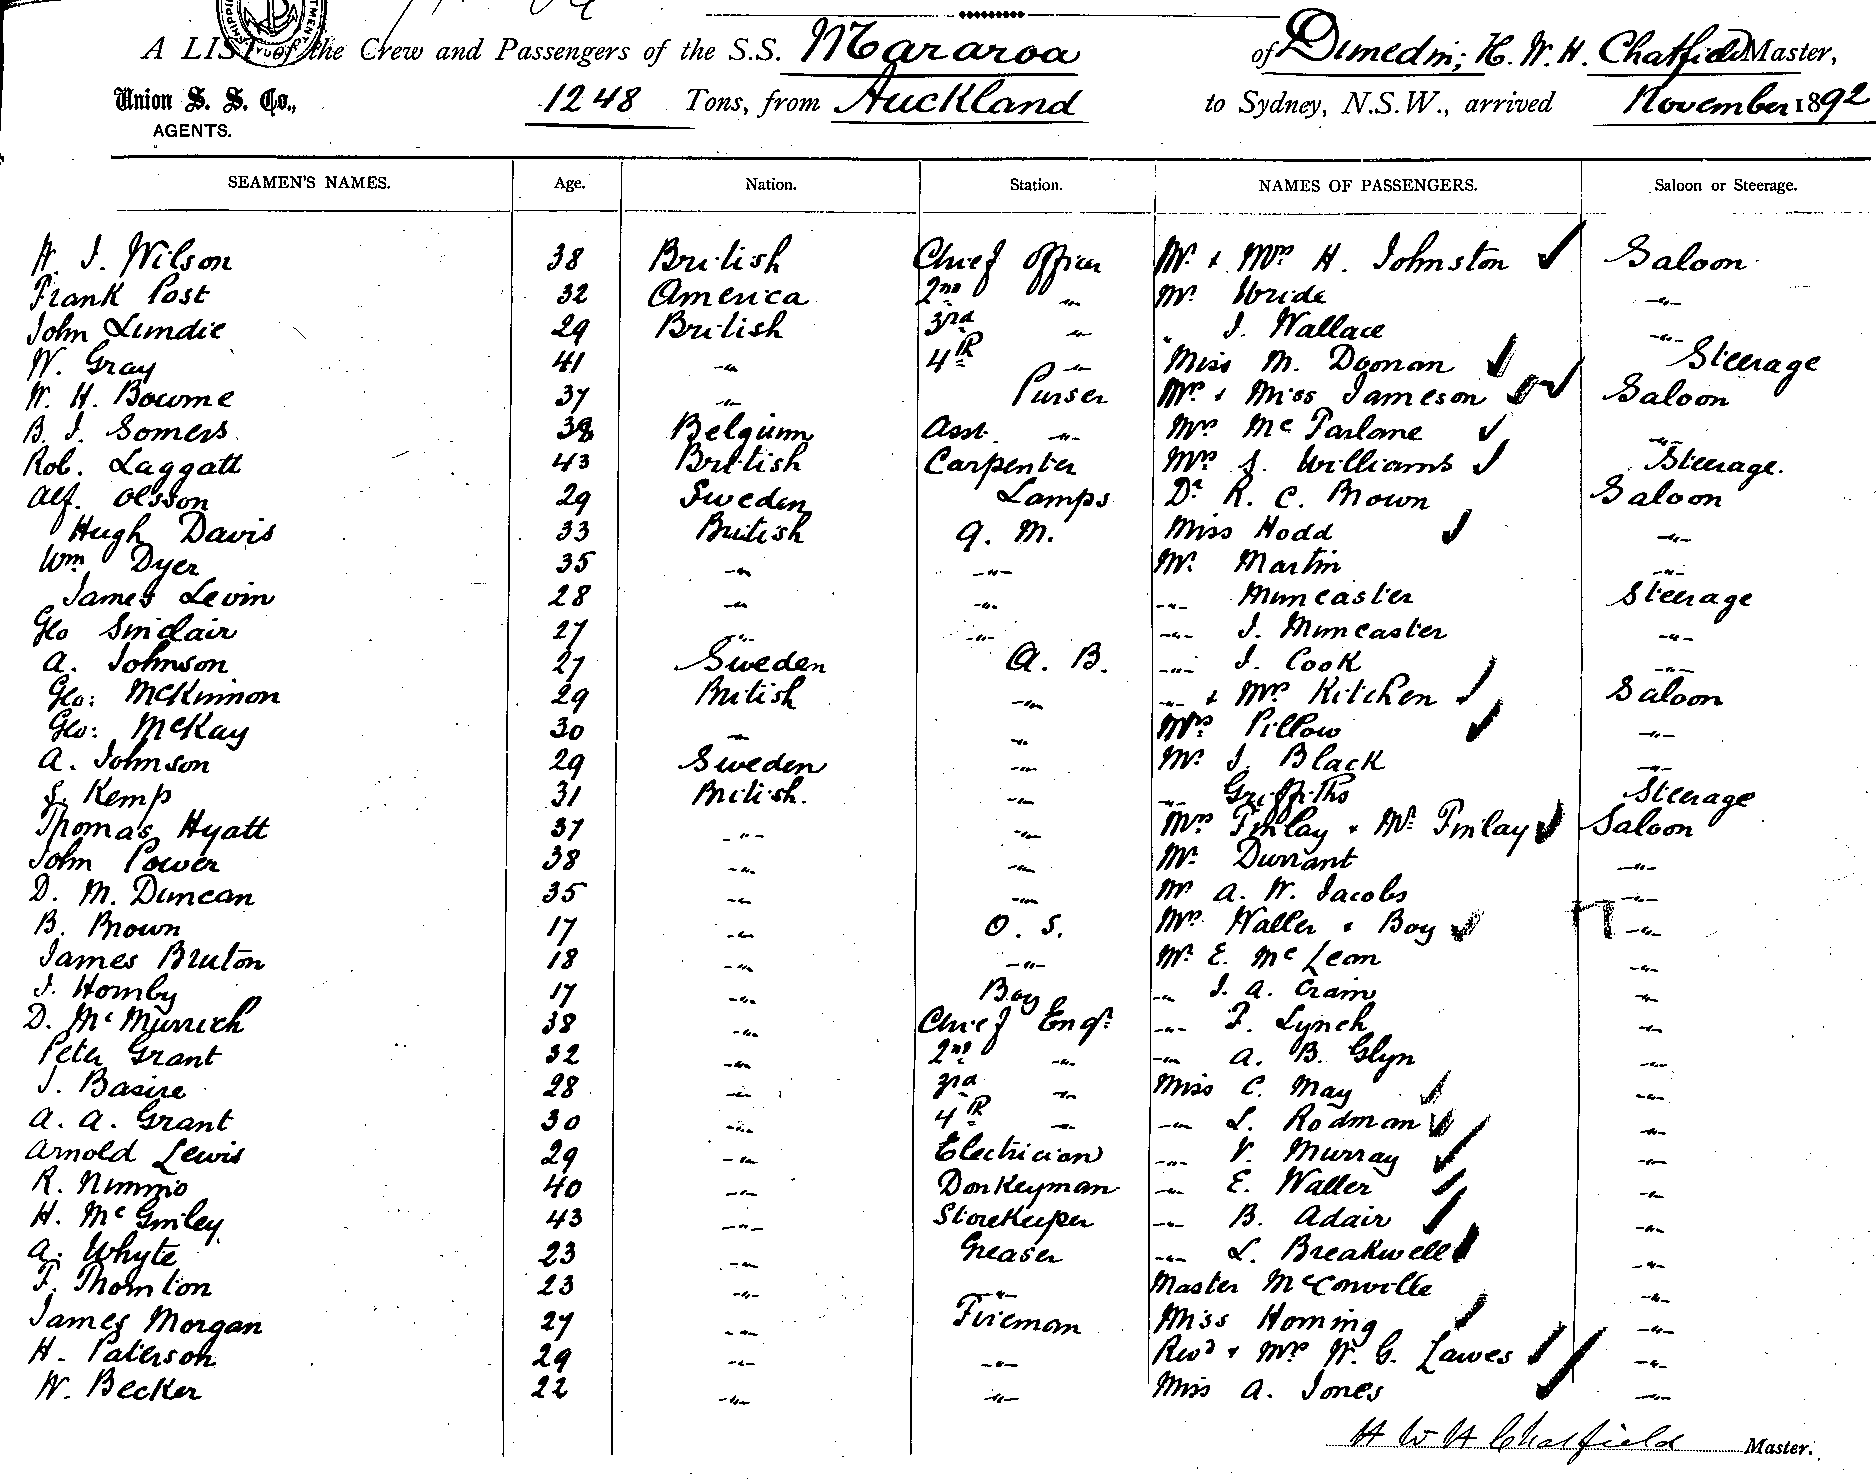 A LIST of the Crew and Passengers of the S.S. Mararoa of Dunedin; H. W. H. Chatfield Master,
Union S. S. Co., AGENTS. 1248 Tons, from Auckland to Sydney, N.S.W., arrived November 1892
SEAMEN'S NAMES. Age. Nation. Station. NAMES OF PASSENGERS. Saloon or Steerage.
H. J. Wilson 38 British Chief Officer Mr. & Mrs H. Johnston Saloon
Frank Post 32 America 2nd -"- Mr. Uride -"-
John Lundie 29 British 3rd -"- " J. Wallace -"-
W. Gray 41 -"- 4th -"- Miss M. Doonan Steerage
W. H. Bourne 37 -"- Purser Mr. & Miss Jameson Saloon
B. J. Somers 38 Belgium Asst. -"- Mrs McFarlane -"-
Rob. Laggatt 43 British Carpenter Mrs J. Williams Steerage.
Alf. Olsson 29 Sweden Lamps Dr R. C. Brown Saloon
Hugh Davis 33 British Q. M. Miss Hodd -"-
Wm Dyer 35 -"- -"- Mr. Martin -"-
James Levin 28 -"- -"- -"- Muncaster Steerage
Geo Sinclair 27 -"- -"- -"- J. Muncaster -"-
A. Johnson 27 Sweden A. B. -"- J. Cook -"-
Geo: McKinnon 29 British -"- -"- & Mrs Kitchen Saloon
Geo: McKay 30 -"- -"- Mrs Pillow -"-
A. Johnson 29 Sweden -"- Mr. J. Black -"-
S. Kemp 31 British. -"- -"- Griffiths Steerage
Thomas Hyatt 37 -"- -"- Mrs Finlay & Mr. Finlay Saloon
John Power 38 -"- -"- Mr. Durrant -"-
D. M. Duncan 35 -"- -"- Mr A. W. Jacobs -"-
B. Brown 17 -"- O. S. Mrs Waller & Boy -"-
James Bruton 18 -"- -"- Mr. E. McLean -"-
J. Hornby 17 -"- Boy -"- J. A. Crain -"-
D. McMurrich 38 -"- Chief Engr. -"- F. Lynch -"-
Peter Grant 32 -"- 2nd -"- -"- A. B. Glyn -"-
J. Basire 28 -"- 3rd -"- Miss C. May -"-
A. A. Grant 30 -"- 4th -"- -"- L. Rodman -"-
Arnold Lewis 29 -"- Electrician -"- V. Murray -"-
R. Nimmo 40 -"- Donkeyman -"- E. Waller -"-
H. McGinley 43 -"- Storekeeper -"- B. Adair -"-
A. Whyte 23 -"- Greaser -"- L. Breakwell -"-
F. Thornton 23 -"- -"- Master McConville -"-
James Morgan 27 -"- Fireman Miss Horning -"-
H. Paterson 29 -"- -"- Revd & Mrs W. G. Lawes -"-
W. Becker 22 -"- -"- Miss A. Jones -"-
H W H Chatfield Master.